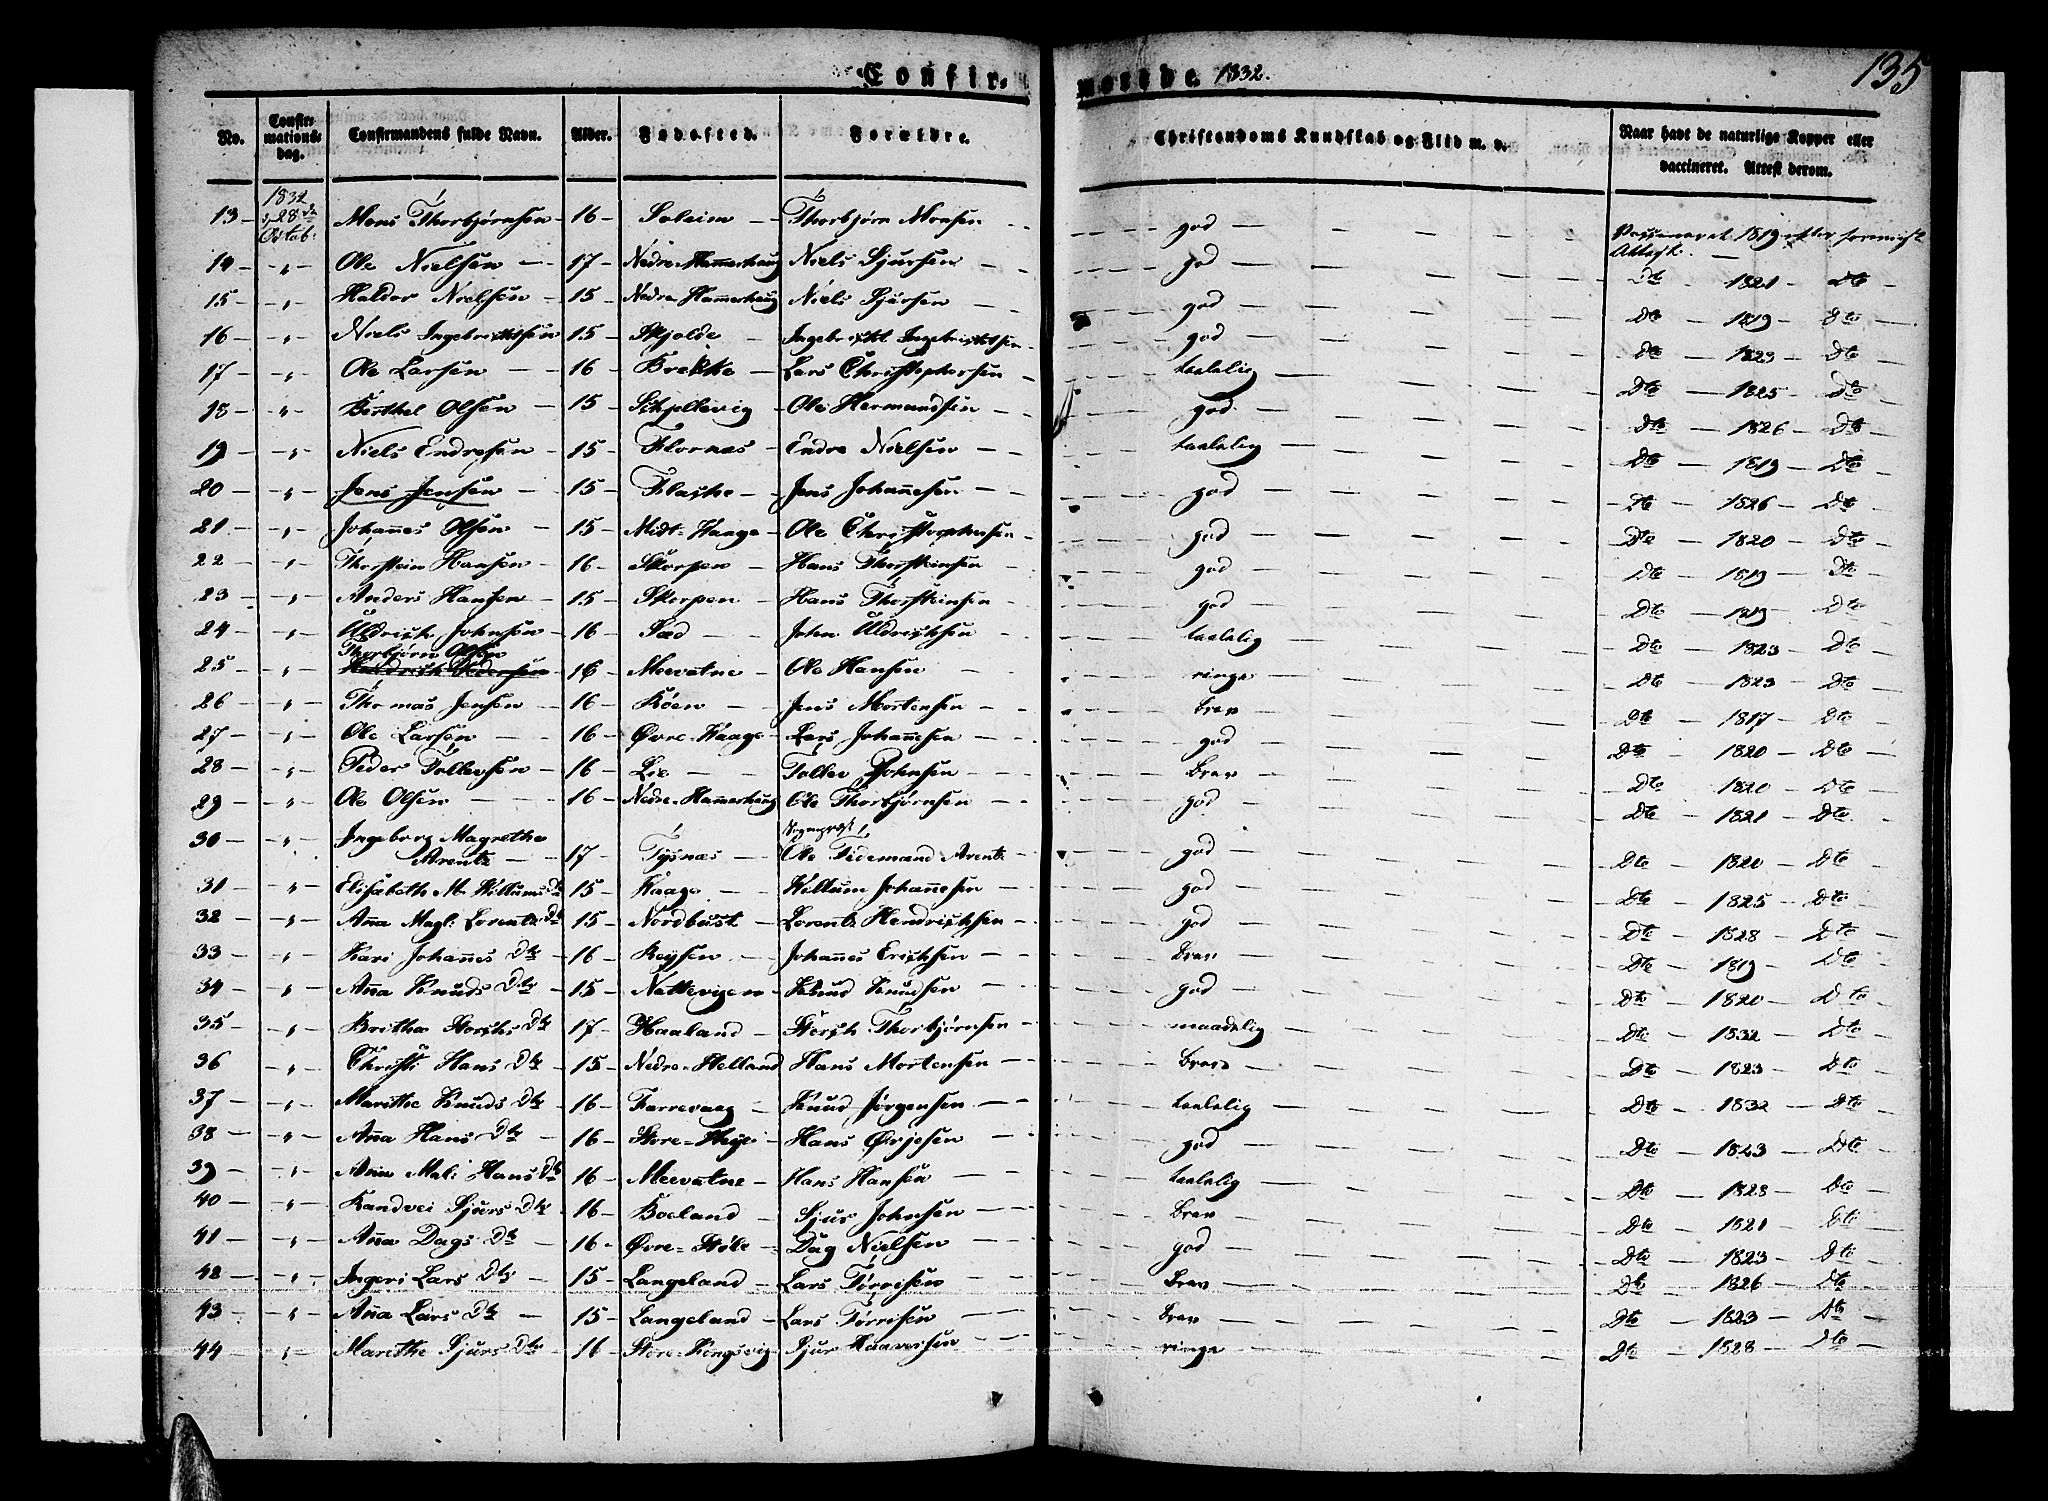 Confirmerede 1832. 135
No. Confirmationsdag. Confirmandens fulde Navn. Alder. Fødested. Forældre. Christendoms Kundskab og Flid m. v. Naar havt de naturlige Kopper eller vaccineret. Attest derom.
13 1832 28de Octob: Mons Thorbjørnsen 16 Soleim Thorbjørn Monsen god Vaccineret 1819 efter foreviist Attest.
14 " Ole Nielsen 17 Nedre Hammerhaug Niels Sjursen god Dto 1821 Dto
15 " Haldor Nielsen 15 Nedre Hammerhaug Niels Sjursen god Dto 1819 Dto
16 " Niels Ingebrictsen 15 Skjolde Ingebrict Ingebrictsen god Dto 1823 Dto
17 " Ole Larsen 16 Brekke Lars Christophersen taalelig Dto 1825 Dto
18 " Berthel Olsen 15 Skjellevig Ole Hermandsen god Dto 1826 Dto
19 " Niels Endresen 15 Flornæs Endre Nielsen taalelig Dto 1819 Dto
20 " Jens Jensen 15 Flaske Jens Johannesen god Dto 1826 Dto
21 " Johannes Olsen 15 Midt-Haage Ole Christophersen god Dto 1820 Dto
22 " Thorstein Hansen 16 Skorpen Hans Thorsteinsen god Dto 1819 Dto
23 " Anders Hansen 15 Skorpen Hans Thorsteinsen god Dto 1819 Dto
24 " Uldrich Johnsen 16 Sæd John Uldrichsen taalelig Dto 1823 Dto
Thorbjørn Olsen
25 " 16 Meevatne Ole Hansen ringe Dto 1823 Dto
26 " Thomas Jensen 16 Røen Jens Mortensen brav Dto 1817 Dto
27 " Ole Larsen 16 Øvre-Haage Lars Johannesen god Dto 1820 Dto
28 " Peder Tollevsen 16 Lie Tollev Johnsen brav Dto 1820 Dto
29 " Ole Olsen 16 Nedre-Hammerhaug Ole Thorbjørnsen god Dto 1821 Dto
30 " Ingeborg Magrethe Arentz 17 Tysnæs Sogneprest Ole Tidemand Arentz god Dto 1820 Dto
31 " Elisabeth M. Willums Dtr 15 Haage Willum Johannesen god Dto 1825 Dto
32 " Anna Magl: Lorents Dtr 15 Nordbust Lorents Hendrichsen god Dto 1828 Dto
33 " Kari Johannes Dtr 16 Reysen Johannes Erichsen brav Dto 1819 Dto
34 " Anna Knuds Dtr 15 Nattevigen Knud Knudsen god Dto 1820 Dto
35 " Britha Storchs Dtr 17 Haaland Storch Thorbjørnsen maadelig Dto 1832 Dto
36 " Christi Hans Dtr 15 Nedre-Helland Hans Mortensen brav Dto 1823 Dto
37 " Marithe Knuds Dtr 16 Farrevaag Knud Jørgensen taalelig Dto 1832 Dto
38 " Anna Hans Dtr 16 Store- Hans Ørjesen god Dto 1823 Dto
39 " Anna Mali Hans Dtr 16 Meevatne Hans Hansen taalelig Dto 1828 Dto
40 " Randvei Sjurs Dtr 16 Boeland Sjur Johnsen brav Dto 1821 Dto
41 " Anna Dags Dtr 16 Øvre-Støle Dag Nielsen god Dto 1823 Dto
42 " Ingeri Lars Dtr 15 Langeland Lars Tørrisen brav Dto 1826 Dto
43 " Anna Lars Dtr 15 Langeland Lars Tørrisen brav Dto 1823 Dto
44 " Marithe Sjurs Dtr 16 Store-Kongsvig Sjur Haaversen ringe Dto 1828 Dto